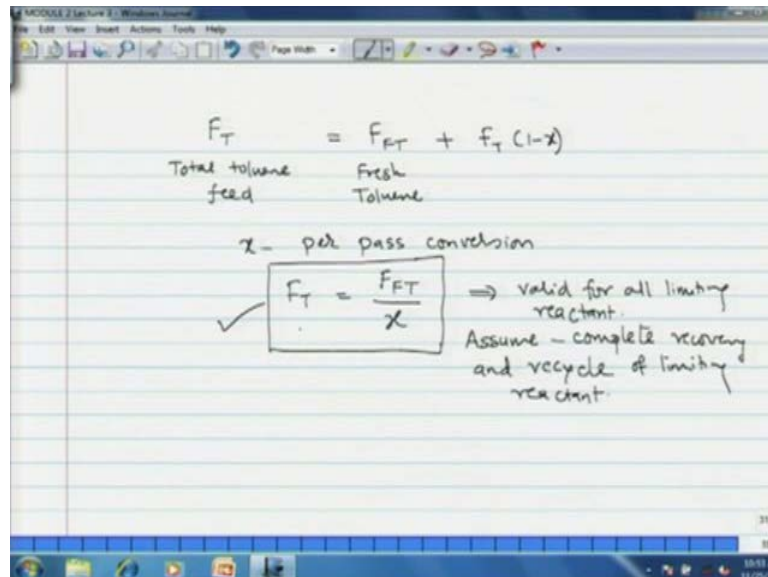 MODULE 2 Lecture 3 - Windows Journal
File Edit View Insert Actions Tools Help
Page Width
F_T = F_FT + f_T (1-x)
Total toluene Fresh
feed Toluene
x - per pass conversion
F_T = F_FT / x ⇒ valid for all limiting
reactant.
Assume - complete recovery
and recycle of limiting
reactant.
10:53